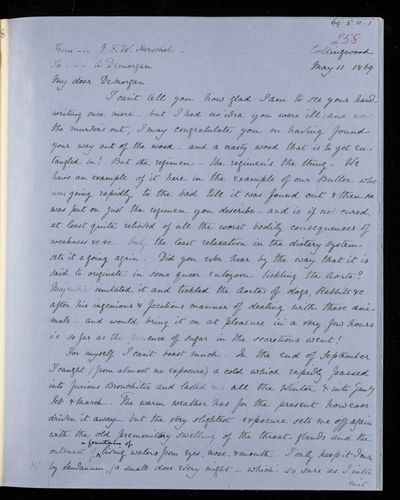 69. 5. 11. 1
258
From --- J. F. W. Herschel.
Collingwood
To --- A Demorgan
May 11 1869
My dear Demorgan
I can't tell you how glad I am to see your hand
writing once more - but I had no idea you were ill; and now
the murder's out, I may congratulate you on having found
your way out of the wood - and a nasty wood that is to get en-
tangled in! But the regimen - the regimen's the thing - We
have an example of it here in the Example of our Butler who
was going rapidly to the bad till it was found out & then he
was put on just the regimen you describe - and is if not cured
at least quite relieved of all the worst bodily consequences of
weakness &c &c. Only the least relaxation in the dietary system
sets it agoing again. Did you ever hear by the way that it is
said to originate in some queer entozoon tickling the Aorta?
Magendie imitated it and tickled the aortas of dogs, Rabbits &c
after his ingenious & facetious manner of dealing with these ani-
mals - and would bring it on at pleasure in a very few hours
i.e so far as the presence of sugar in the secretions went!
For myself I can't boast much. In the end of September
I caught (from almost no exposure) a cold which rapidly passed
into furious Bronchitis and lasted me all the Winter & into Jany
Feb & March. The warm weather has for the present however
driven it away but the very slightest exposure sets me off again
with the old premonitory swelling of the throat-glands and the
outburst of fountains of living waters from eyes, nose, & mouth. I only keep it down
by laudanum, (a small dose every night - which so sure as I inter
mit